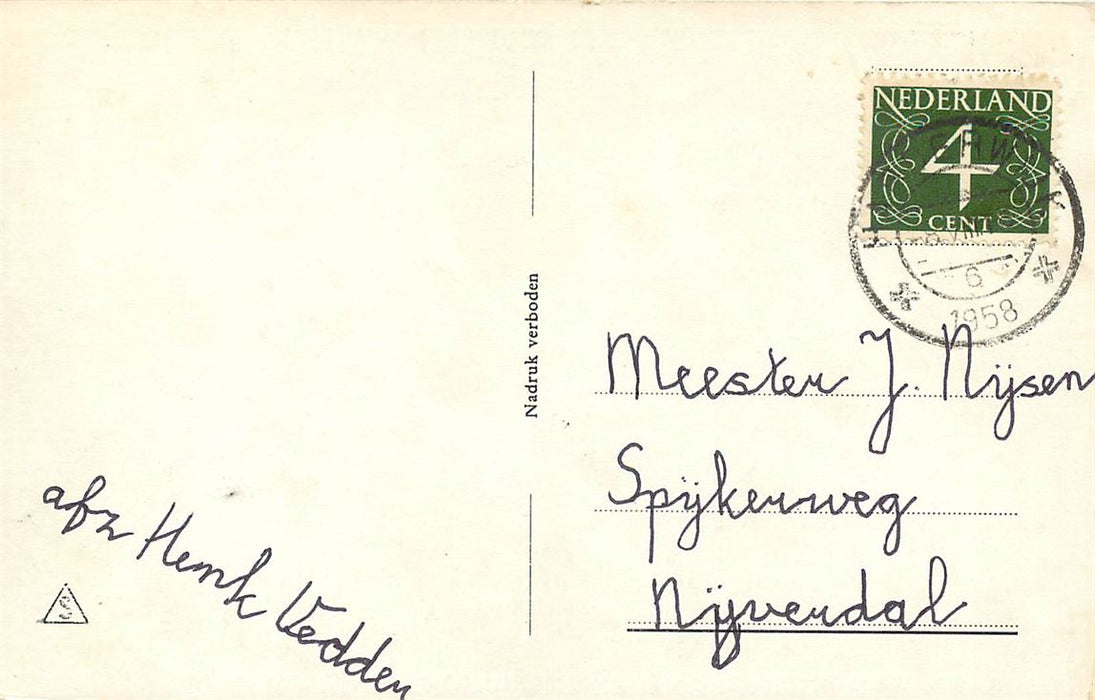 NEDERLAND
4
CENT
6
1958
Nadruk verboden
Meester J. Nijsen
Spijkerweg
Nijverdal
afz Henk Vedden
S